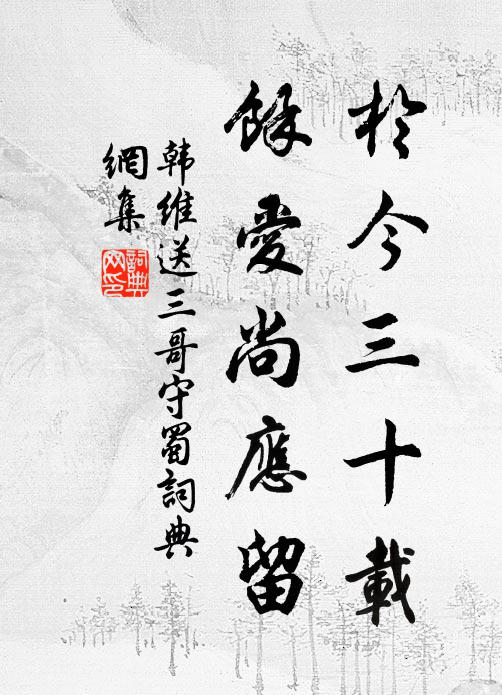 於今三十載
餘愛尚應留
韩维送三哥守蜀詞典
網集
詞典
网印